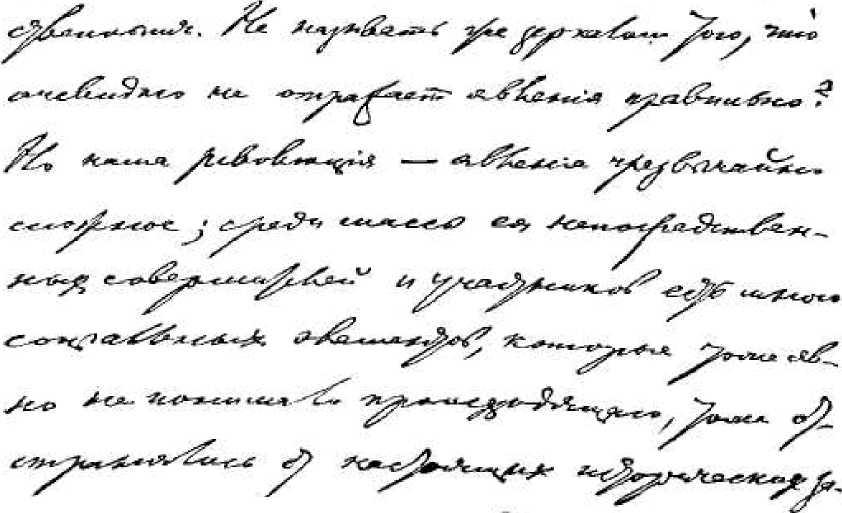 ственным. Не называть же зеркалом того, что
очевидно не отражает явленія правильно?
Но наша революція — явленіе чрезвычайно
сложное; среди массы ея непосредствен-
ных совершителей и участников есть много
соціальных элементов, которые тоже яв-
но не понимали происходящаго, тоже от-
странялись от настоящих исторических за-